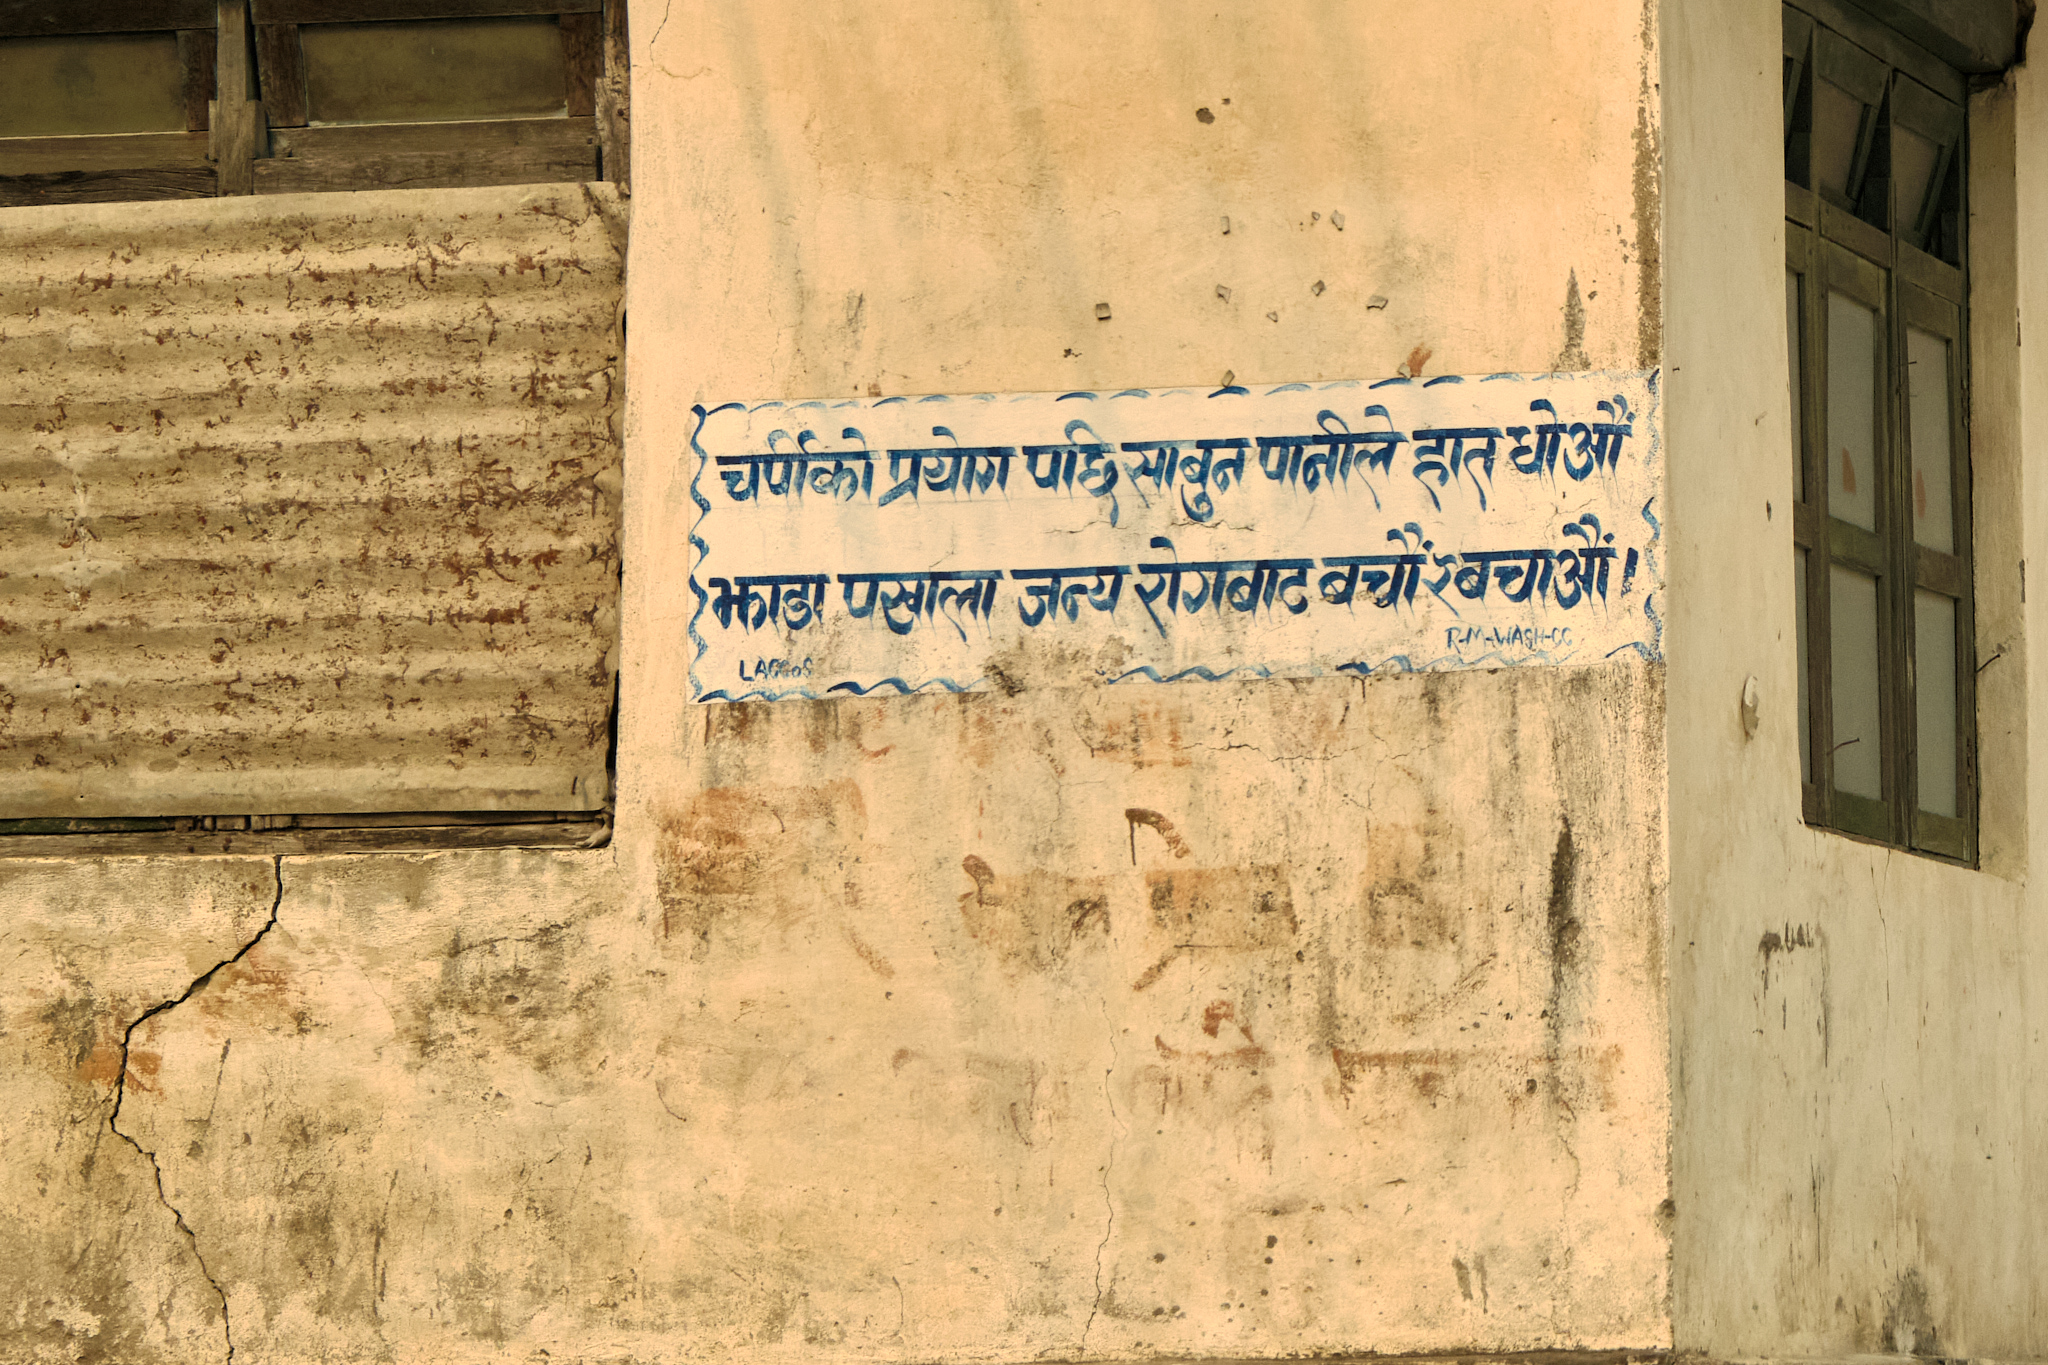 चर्पीको प्रयोग पछि साबुन पानीले हात धोऔं
झाडा पखाला जन्य रोगबाट बचौं र बचाऔं।
R-M-WASH-CC